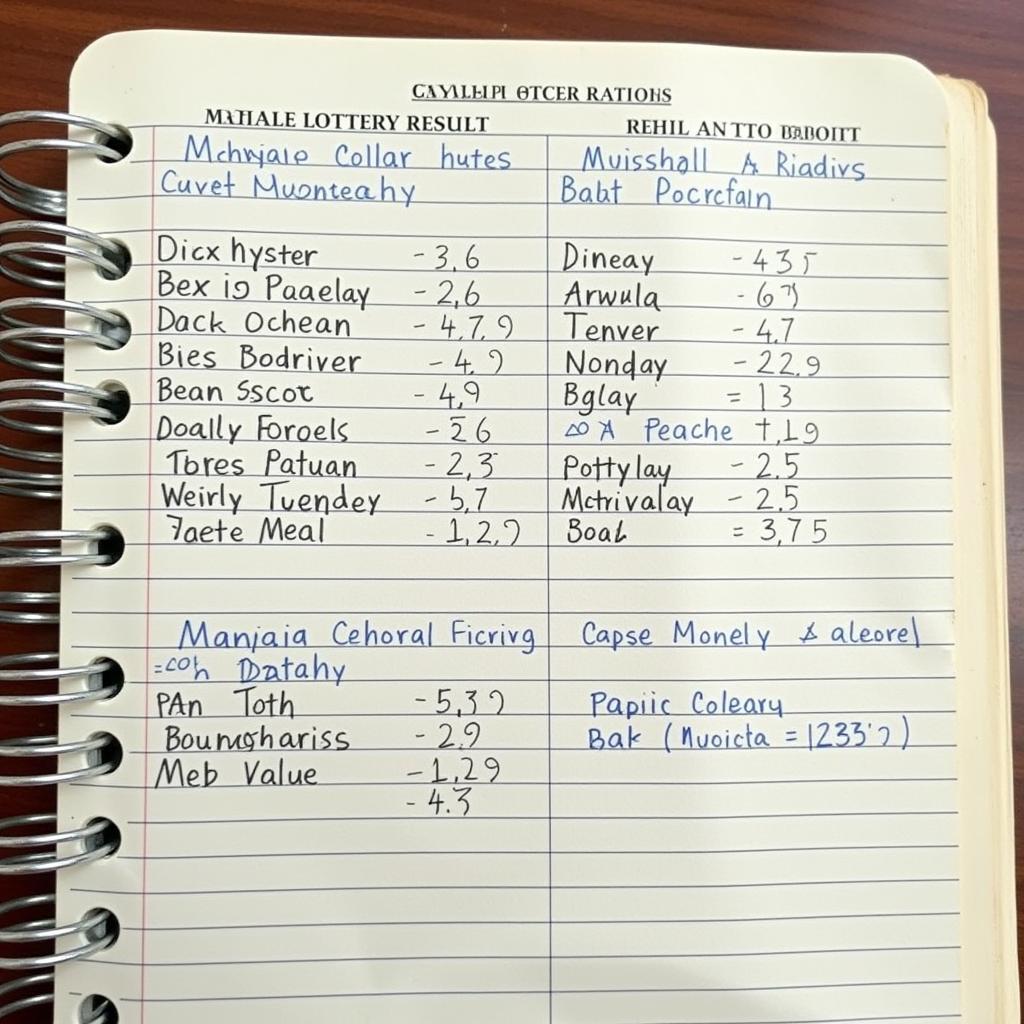 CAYALLIPI OTCER RATIONS
MATHALE LOTTERY RESULT
Mchnjalo Collar hutes
Cuvet Muonteahy
Dicx hyster - 3,6
Bex io Paaelay - 2,6
Dack Ochean - 4,7,9
Bies Bodriver - 4,9
Bean Sscot - 4,9
Doally Foroels - 26
Tores Patuan - 2,3
Weirly Tuendey - 5,7
7aete Meal - 1,2,9
Manjaia Cehoral Ficrivg
=coh Datahy
PAn Toth - 5,39
Boumghariss - 29
Meb Value - 1,29
- 4.3
REHIL AN TTO BBBOITT
Muisshall A Riadivs
Balt Pocrcfain
Dineay - 435
Arwula - 67
Tenver - 4.7
Nonday - 22.9
Bglay = 13
A Peache +,19
Pottylay - 2.5
Mctrivalay - 2.5
Boal = 3,75
Capse Monely & aleorel
Papiic Coleary
Bak (Nuoicta = 1233'2)